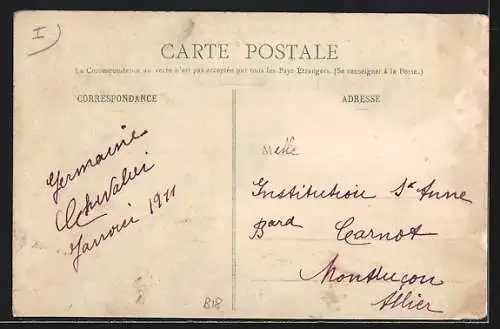 I)
CARTE POSTALE
La Correspondance au recto n'est pas acceptée par tous les Pays Étrangers. (Se renseigner à la Poste.)
CORRESPONDANCE
ADRESSE
Germaine
Chevalier
Janvier 1911
Melle
Institution Ste Anne
Bard Carnot
Montluçon
Allier
B18